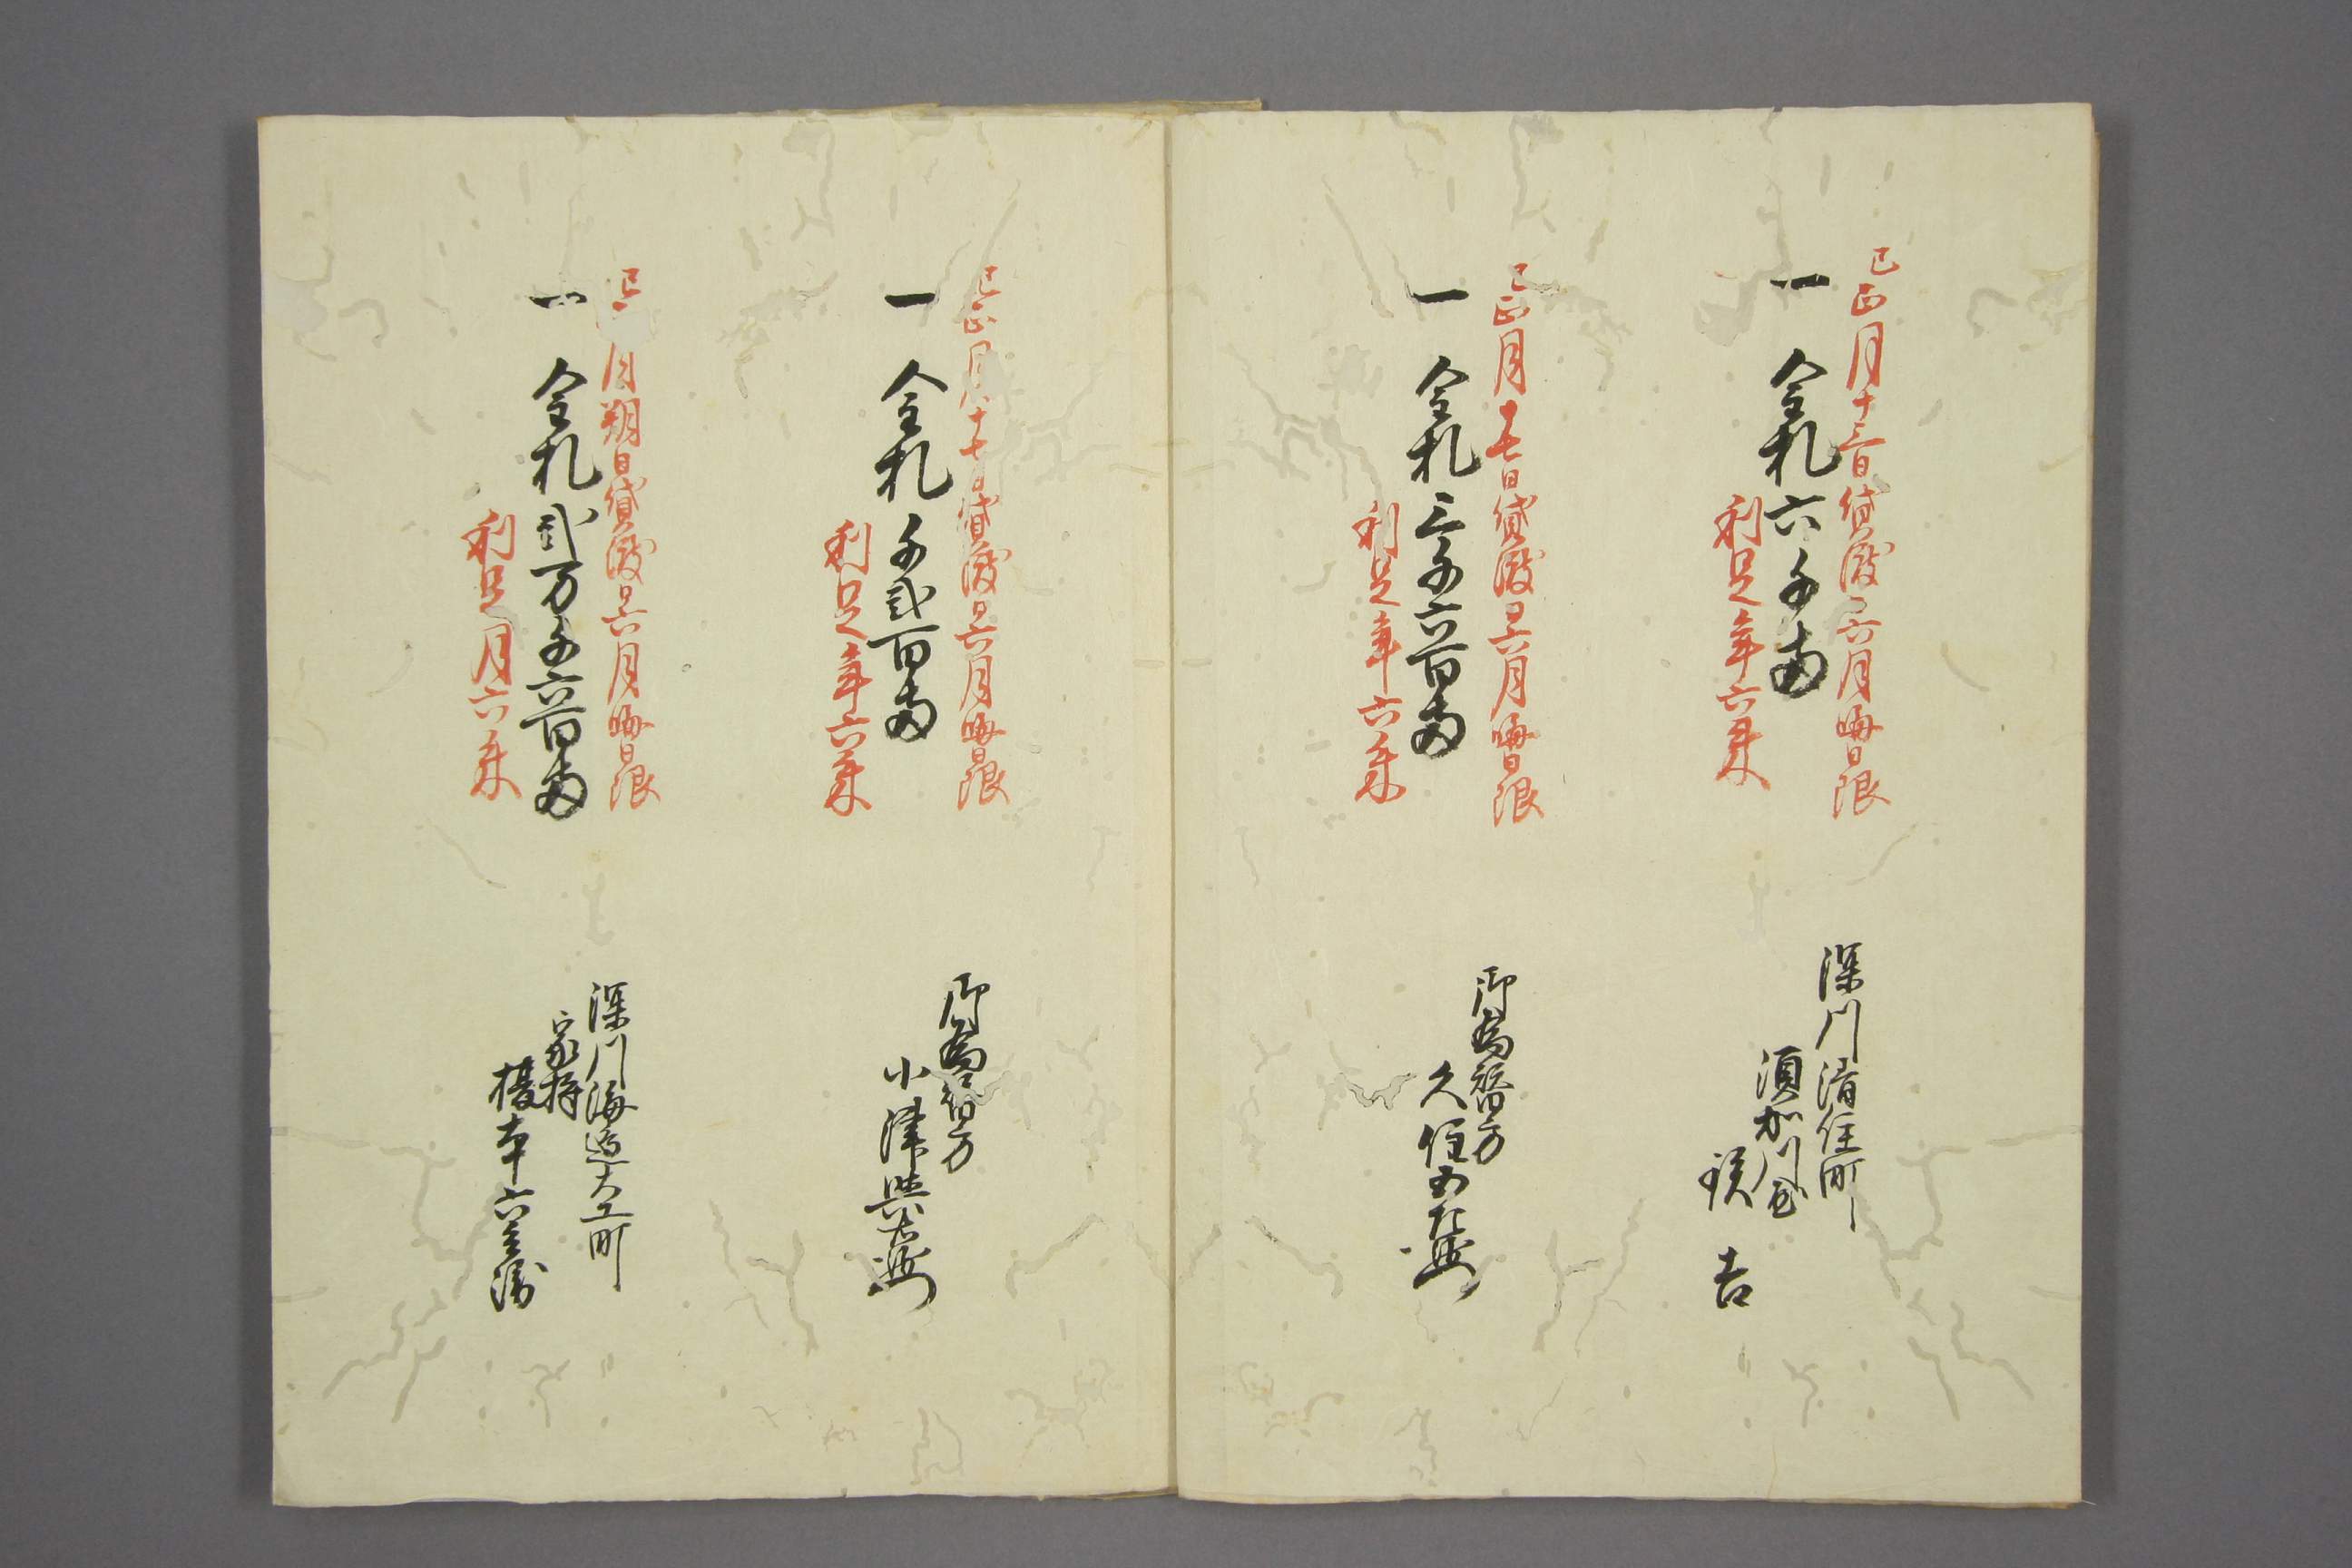 巳正月十三日貸渡巳六月晦日限
一 金札六千両
利足年六朱
深川清住町
須加川屋
吉
巳正月十七日貸渡巳六月晦日限
一 金札三千六百両
利足年六朱
御為替方
久住五左衛門
巳正月十七日貸渡巳六月晦日限
一 金札千弐百両
利足年六朱
御為替方
小津與右衛門
巳 月朔日貸渡巳六月晦日限
一 金札弐万千六百両
利足月六朱
深川海辺大工町
家持
本六三